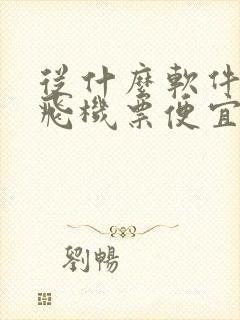 從什麼軟件
飛機票便宜
劉暢